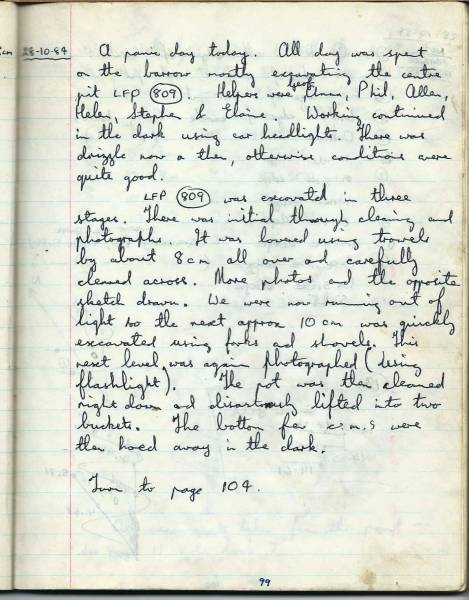 28-10-84 A panic day today. All day was spent
on the barrow mostly excavating the centre
pit LFP 809. Helpers were Geoff, Emma, Phil, Allen,
Helen, Stephen & Elaine. Working continued
in the dark using car headlights. There was
drizzle now a then, otherwise conditions were
quite good.
LFP 809 was excavated in three
stages. There was initial through cleaning and
photographs. It was lowered using trowels
by about 8cm all over and carefully
cleaned across. More photos and the opposite
sketch drawn. We were now running out of
light so the next approx 10 cm was quickly
excavated using forks ad shovels. This
next level was again photographed (using
flashlight). The pot was then cleaned
right down ad disastrously lifted into two
buckets. The bottom few c.m.s were
then hoed away in the dark.
Turn to page 104.
99